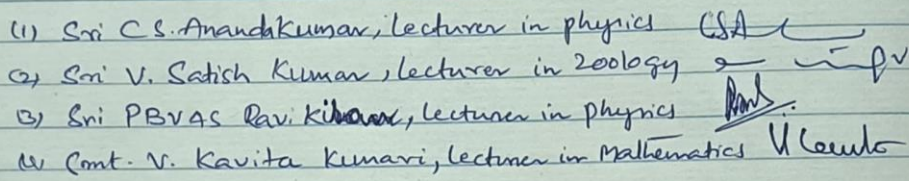 (1) Sri C S. Anandakumar, lecturer in physics CSA
(2) Sri V. Satish Kumar, lecturer in Zoology
(3) Sri PBVAS Ravi, lecturer in physics
(4) Smt. V. Kavita Kumari, lecturer in Mathematics